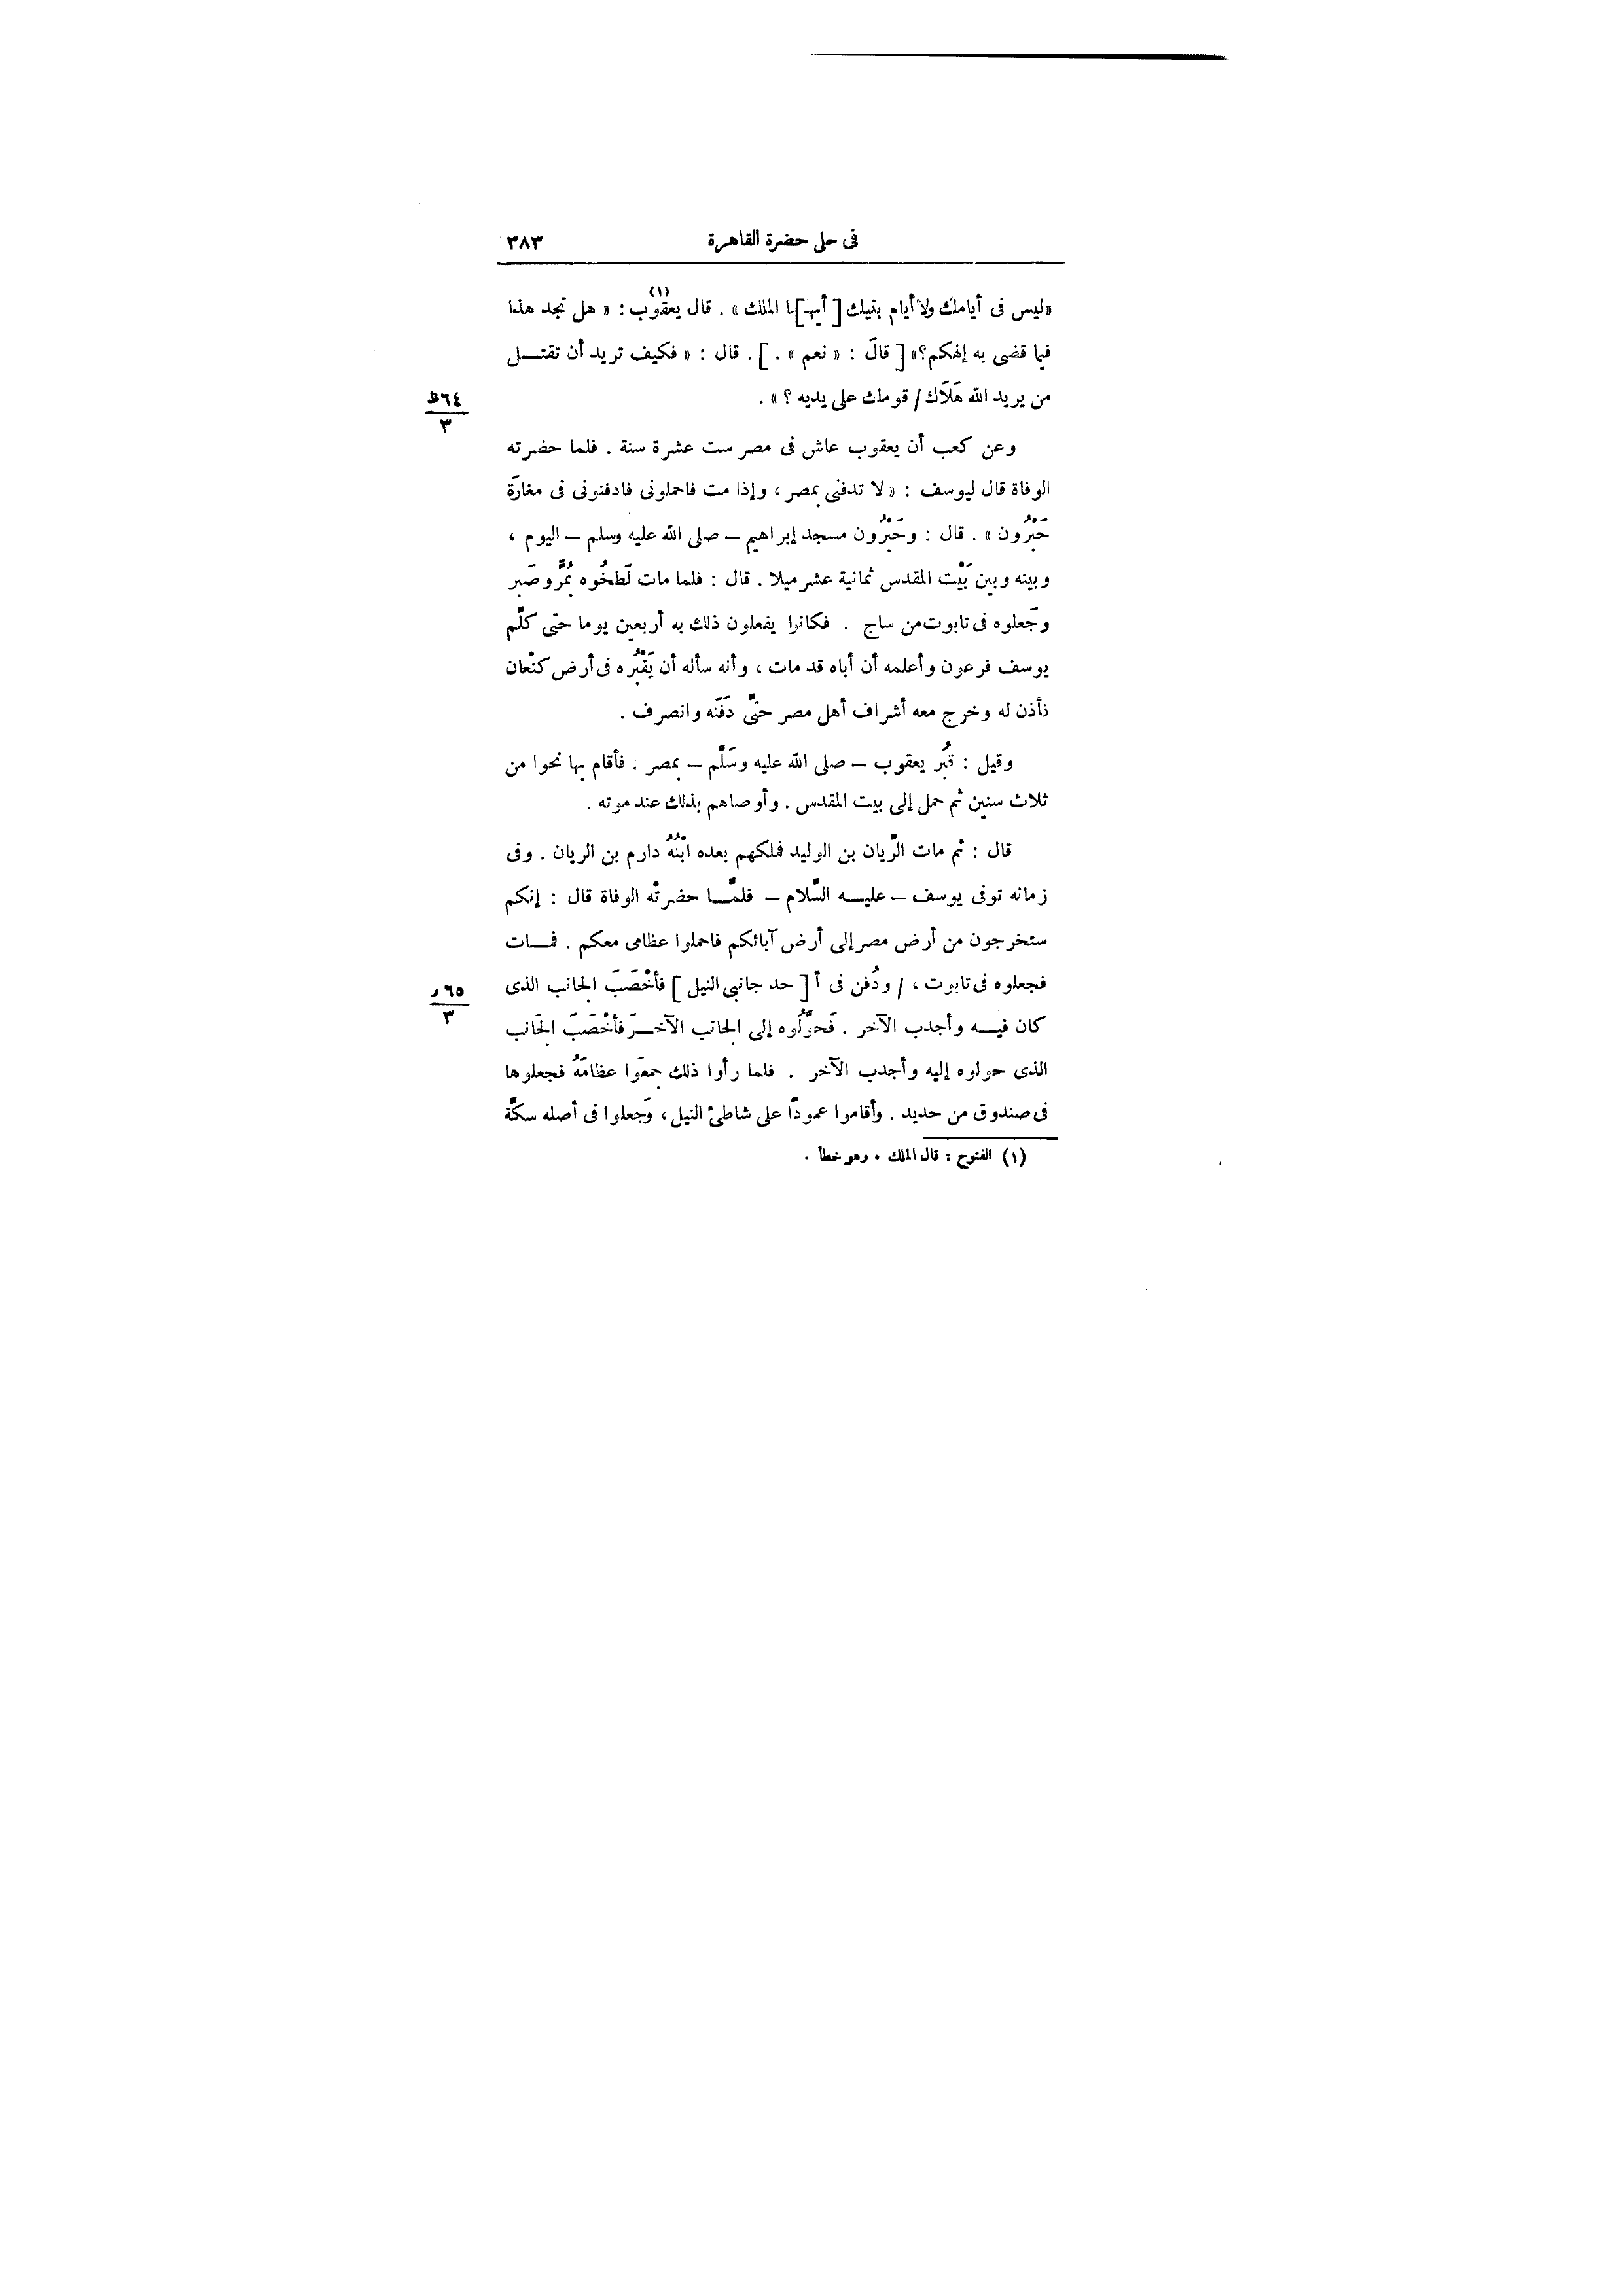 فى حلى حضرة القاهرة ٣٨٣
«ليس فى أيامك ولا أيام بنيك [ أيهـ]ـا الملك» . قال يعقوب (١) : « هل تجد هذا
فيما قضى به إلهكم؟» [ قالَ : « نعم » . ] . قال : « فكيف تريد أن تقتـــل
من يريد الله هَلَاَك / قومك على يديه ؟ » .
٦٤ظ
٣
وعن كعب أن يعقوب عاش فى مصر ست عشرة سنة . فلما حضرته
الوفاة قال ليوسف : « لا تدفنى بمصر ، وإذا مت فاحملونى فادفنونى فى مغارَة
حَبْرُون » . قال : وحَبْرُون مسجد إبراهيم – صلى الله عليه وسلم – اليوم ،
وبينه وبين بَيْت المقدس ثمانية عشر ميلا . قال : فلما مات لَطخُوه بُمرٍّ وصَبر
وجَعلوه فى تابوت من ساج . فكانوا يفعلون ذلك به أربعين يوما حتى كلَّم
يوسف فرعون وأعلمه أن أباه قد مات ، وأنه سأله أن يَقْبُره فى أرض كنْعان
فأذن له وخرج معه أشراف أهل مصر حتَّى دَفَنَه وانصرف .
وقيل : قُبَر يعقوب – صلى الله عليه وسَلَّم – بمصر . فأقام بها نحوا من
ثلاث سنين ثم حمل إلى بيت المقدس . وأوصاهم بذلك عند موته .
قال : ثم مات الرَّيان بن الوليد فملكهم بعده ابْنُهُ دارم بن الريان . وفى
زمانه توفى يوسف – عليـــه السَّلام – فلمَّـــا حضرتْه الوفاة قال : إنكم
ستخرجون من أرض مصر إلى أرض آبائكم فاحملوا عظامى معكم . فمـــات
فجعلوه فى تابوت ، / ودُفن فى أ [ حد جانبى النيل ] فأخْصَبَ الجانب الذى
٦٥و
٣
كان فيـــه وأجدب الآخر . فَحوَّلُوه إلى الجانب الآخـــرَ فأخْصَبَ الجَانب
الذى حولوه إليه وأجدب الآخر . فلما رأوا ذلك جمعَوا عظامَهُ فجعلوها
فى صندوق من حديد . وأقاموا عمودًا على شاطئ النيل ، وجَعلوا فى أصله سكَّة
(١) الفتوح : قال الملك ، وهو خطأ .